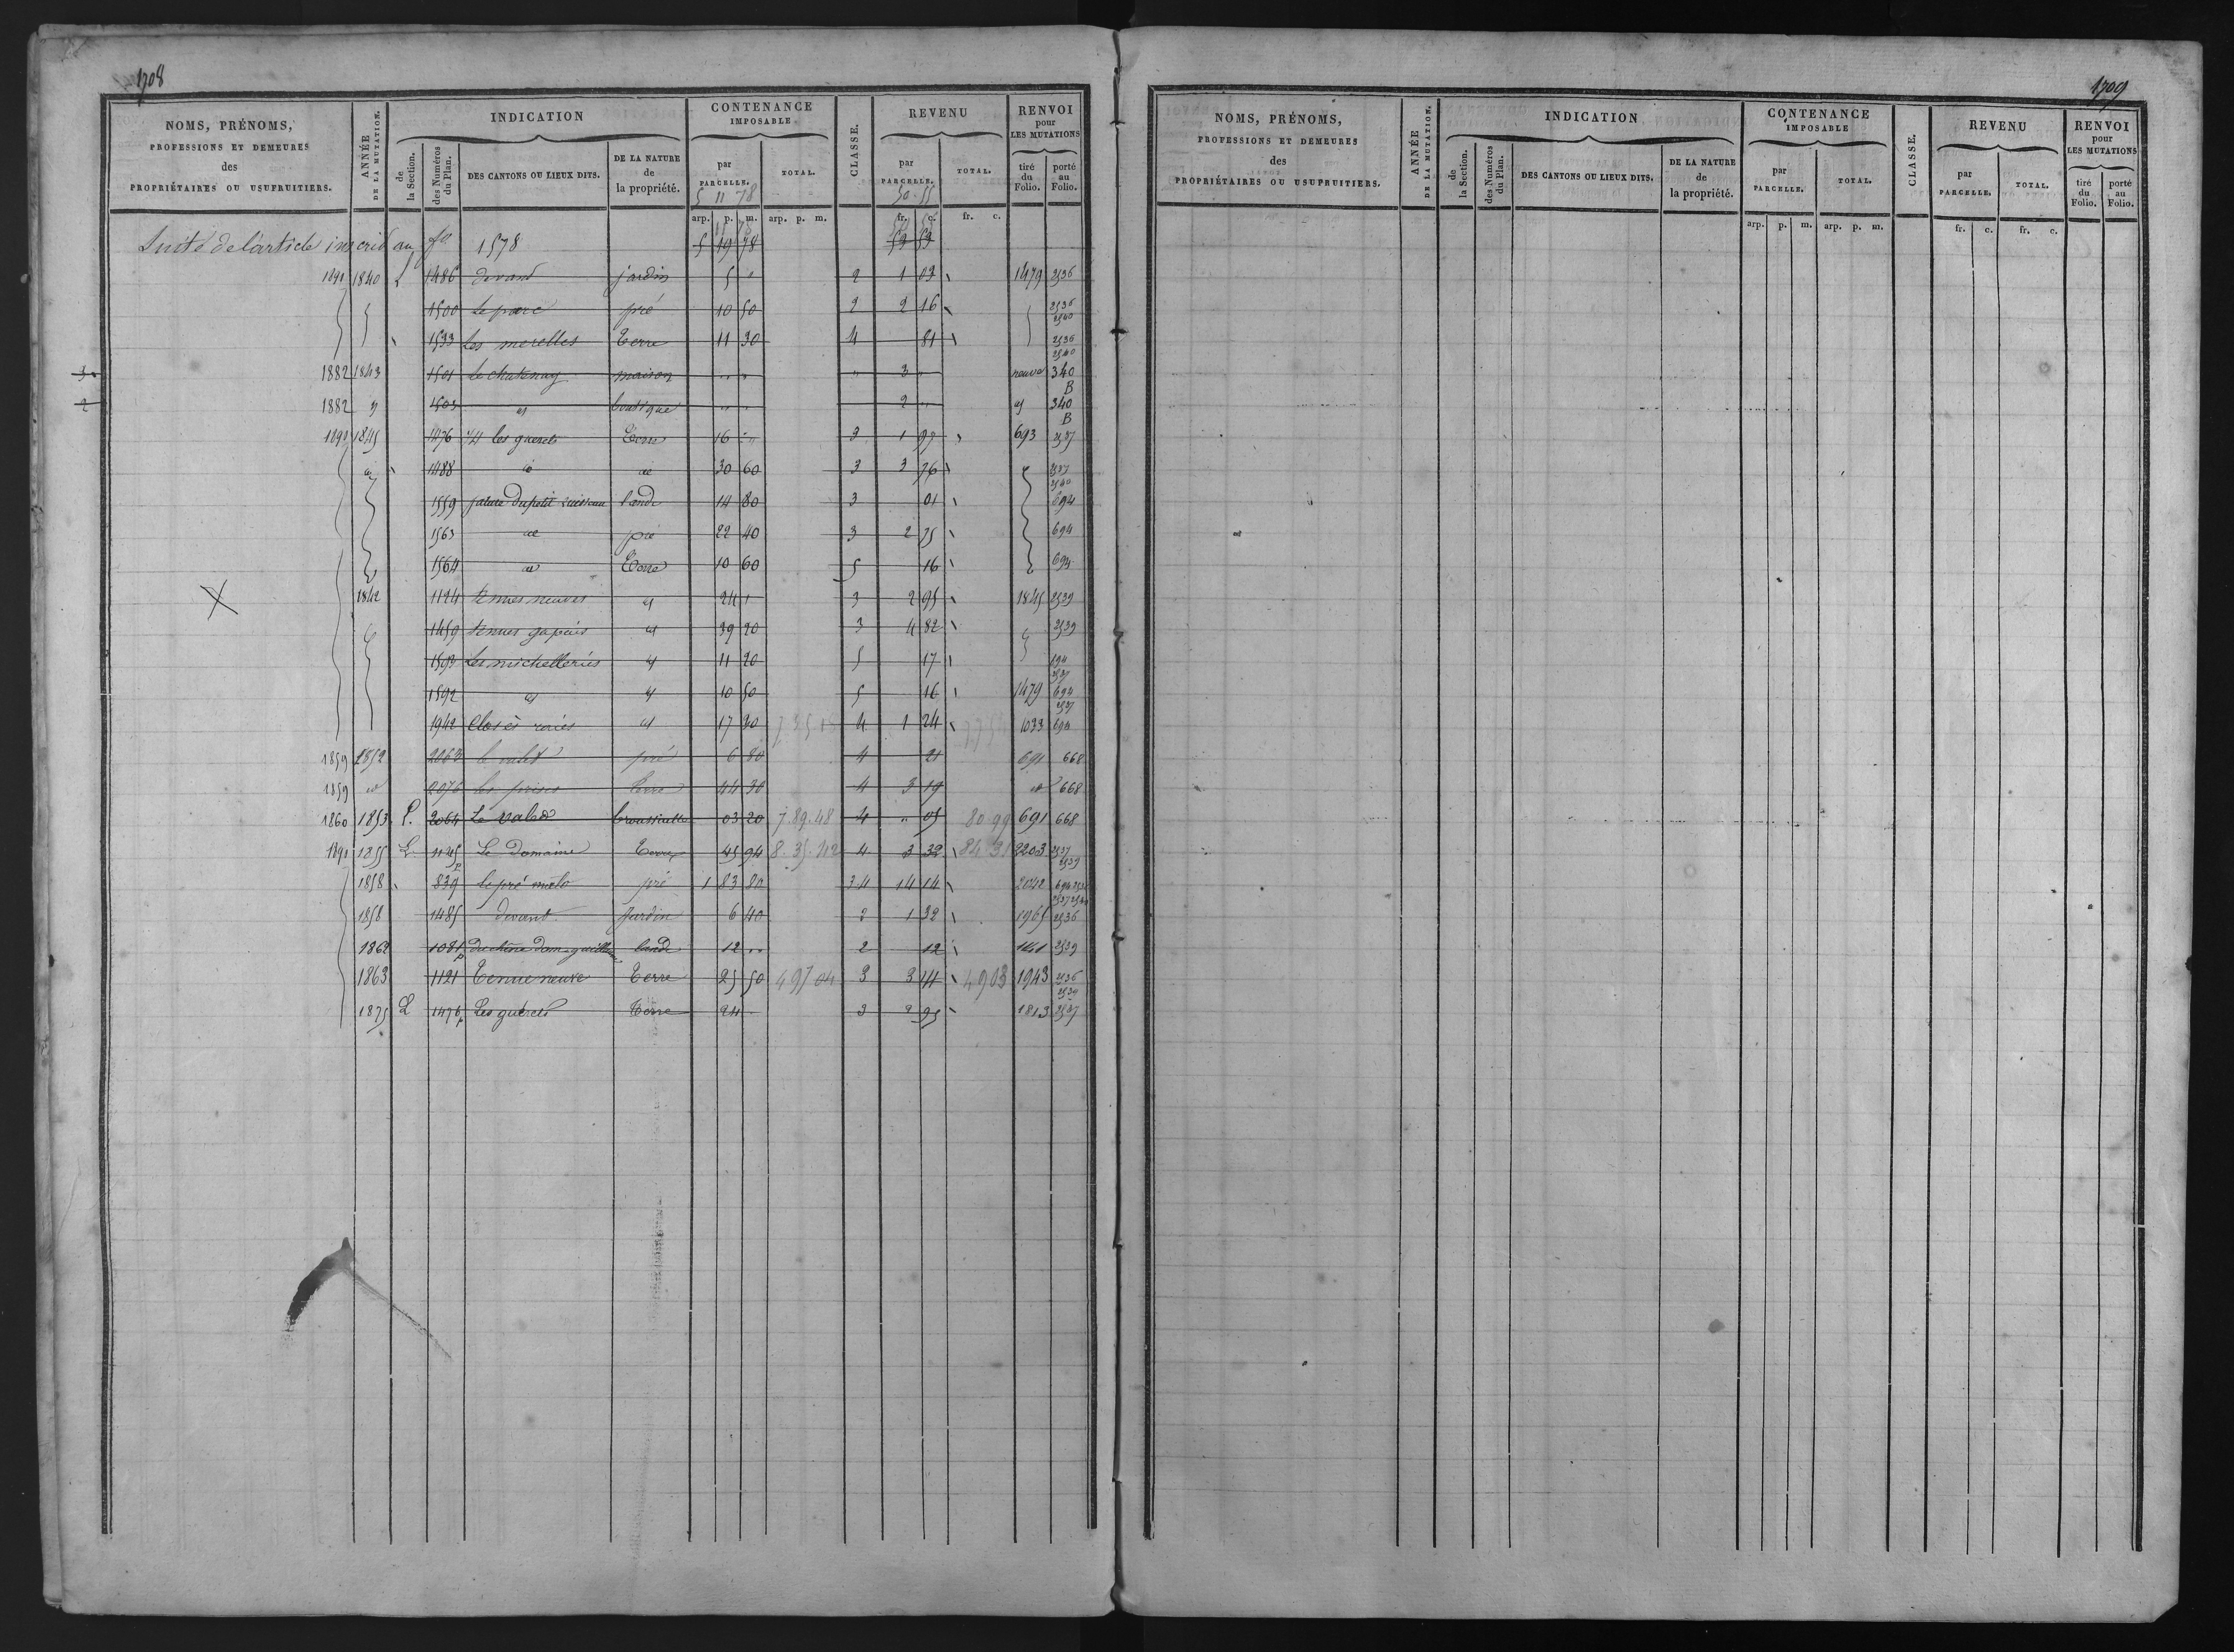 1708
NOMS, PRÉNOMS, PROFESSIONS ET DEMEURES des PROPRIÉTAIRES OU USUFRUITIERS.
ANNÉE DE LA MUTATION.
INDICATION
de la Section.
des Numéros du Plan.
DES CANTONS OU LIEUX DITS.
DE LA NATURE de la propriété.
CONTENANCE IMPOSABLE
par PARCELLE.
TOTAL.
CLASSE.
REVENU
par PARCELLE.
TOTAL.
RENVOI pour LES MUTATIONS
tiré du Folio.
porté au Folio.
5 11 78 50.55
arp. p. m. arp. p. m. fr. c. fr. c.
Suite de l'article inscrit au fo. 1578 5 19 78
1891 1840 L 1486 devant jardin 5 " 2 1 03 1479 2536
1500 Le parc pré 10 50 2 2 16 2536 2540
1533 Les merelles Terre 11 30 4 81 2536 2540
3. 1882 1843 1501 Le chatenay maison " " " 3 " neuve 340 B
2 1882 1503 boutique " " 2 " 340 B
1891 1845 1476 les guerets Terre 16 " 3 1 97 693 2537
1488 id 30 60 3 3 76 2537 2540
1559 petit ruisseau lande 14 80 3 01 694
1563 pré 22 40 3 2 75 694
1564 Terre 10 60 5 16 694
1842 1124 tenues neuves 24 3 2 95 1845 2539
1459 tenues 39 20 3 4 82 2539
1593 Les michelleries 11 20 5 17 694 2537
1592 10 50 5 16 1479 694 2537
1942 Clos ès 17 30 4 1 24 1033 694
1859 1852 2063 le valet pré 6 80 4 21 691 668
1859 2076 les prises terre 44 30 4 3 19 668
1860 1853 2064 Le valet broussaille 03 20 7.89.48 4 " 05 80.99 691 668
1891 1855 L. 1125 p Le Domaine Terre 45 94 8.35.42 4 3 32 84 31 2203 2537 2539
1858 839 le pré pré 1 83 80 3.4 14 14 2042
1858 1485 devant jardin 6 40 2 1 32 1965 2536
1862 1081 p lande 12 " 2 12 141 2539
1863 1121 Tenue neuve Terre 25 50 4 97 04 3 3 14 4903 1943 2536
1875 L 1476 p Les guerets Terre 24 3 2 95 1813 2537
1709
NOMS, PRÉNOMS, PROFESSIONS ET DEMEURES des PROPRIÉTAIRES OU USUFRUITIERS.
ANNÉE DE LA MUTATION.
INDICATION
de la Section.
des Numéros du Plan.
DES CANTONS OU LIEUX DITS.
DE LA NATURE de la propriété.
CONTENANCE IMPOSABLE
par PARCELLE.
TOTAL.
CLASSE.
REVENU
par PARCELLE.
TOTAL.
RENVOI pour LES MUTATIONS
tiré du Folio.
porté au Folio.
arp. p. m. arp. p. m. fr. c. fr. c.